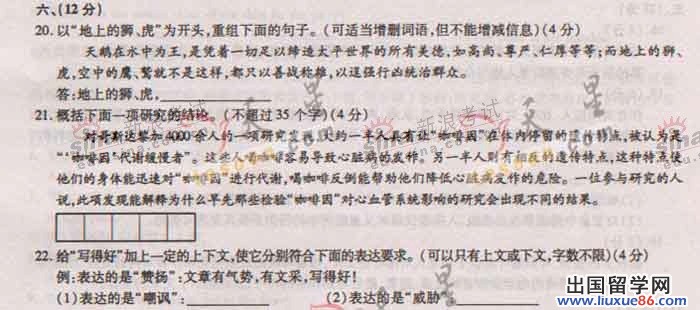 六、(12分)
20. 以“地上的狮、虎”为开头,重组下面的句子。(可适当增删词语,但不能增减信息)(4分)
天鹅在水中为王,是凭着一切足以缔造太平世界的所有美德,如高尚、尊严、仁厚等等;而地上的狮、
虎,空中的鹰、鹫就不是这样,都只以善战称雄,以逞强行凶统治群众。
答:地上的狮、虎,
21. 概括下面一项研究的结论。(不超过35个字)(4分)
对哥斯达黎加4000余人的一项研究发现,大约一半人具有让“咖啡因”在体内停留的遗传特点,被认为是
“‘咖啡因’代谢缓慢者”。这些人喝咖啡容易导致心脏病的发作。另一半人则有相反的遗传特点,这种特点使
他们的身体能迅速对“咖啡因”进行代谢,喝咖啡反倒能帮助他们降低心脏病发作的危险。一位参与研究的人
说,此项发现能解释为什么早先那些检验“咖啡因”对心血管系统影响的研究会出现不同的结果。
22. 给“写得好”加上一定的上下文,使它分别符合下面的表达要求。(可以只有上文或下文,字数不限)(4分)
例:表达的是“赞扬”:文章有气势,有文采,写得好!
(1)表达的是“嘲讽”: (2)表达的是“威胁
新浪考试
天星
sina
出国留学网
www.liuxue86.com